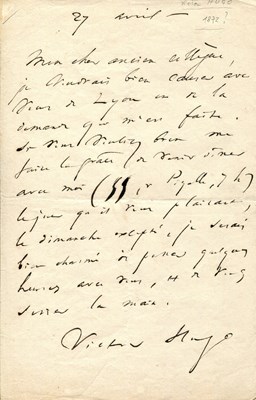 Victor HUGO
27 avril
1872?
Mon cher ancien collègue,
je voudrais bien causer avec
vous de Lyon et de la
demande que m'est faite.
Si vous vouliez bien me
faire la grâce de venir dîner
avec moi (55, r Pigalle, 7 h)
le jour qu'il vous plairait,
le dimanche excepté, je serais
bien charmé de passer quelques
heures avec vous, et de vous
serrer la main.
Victor Hugo